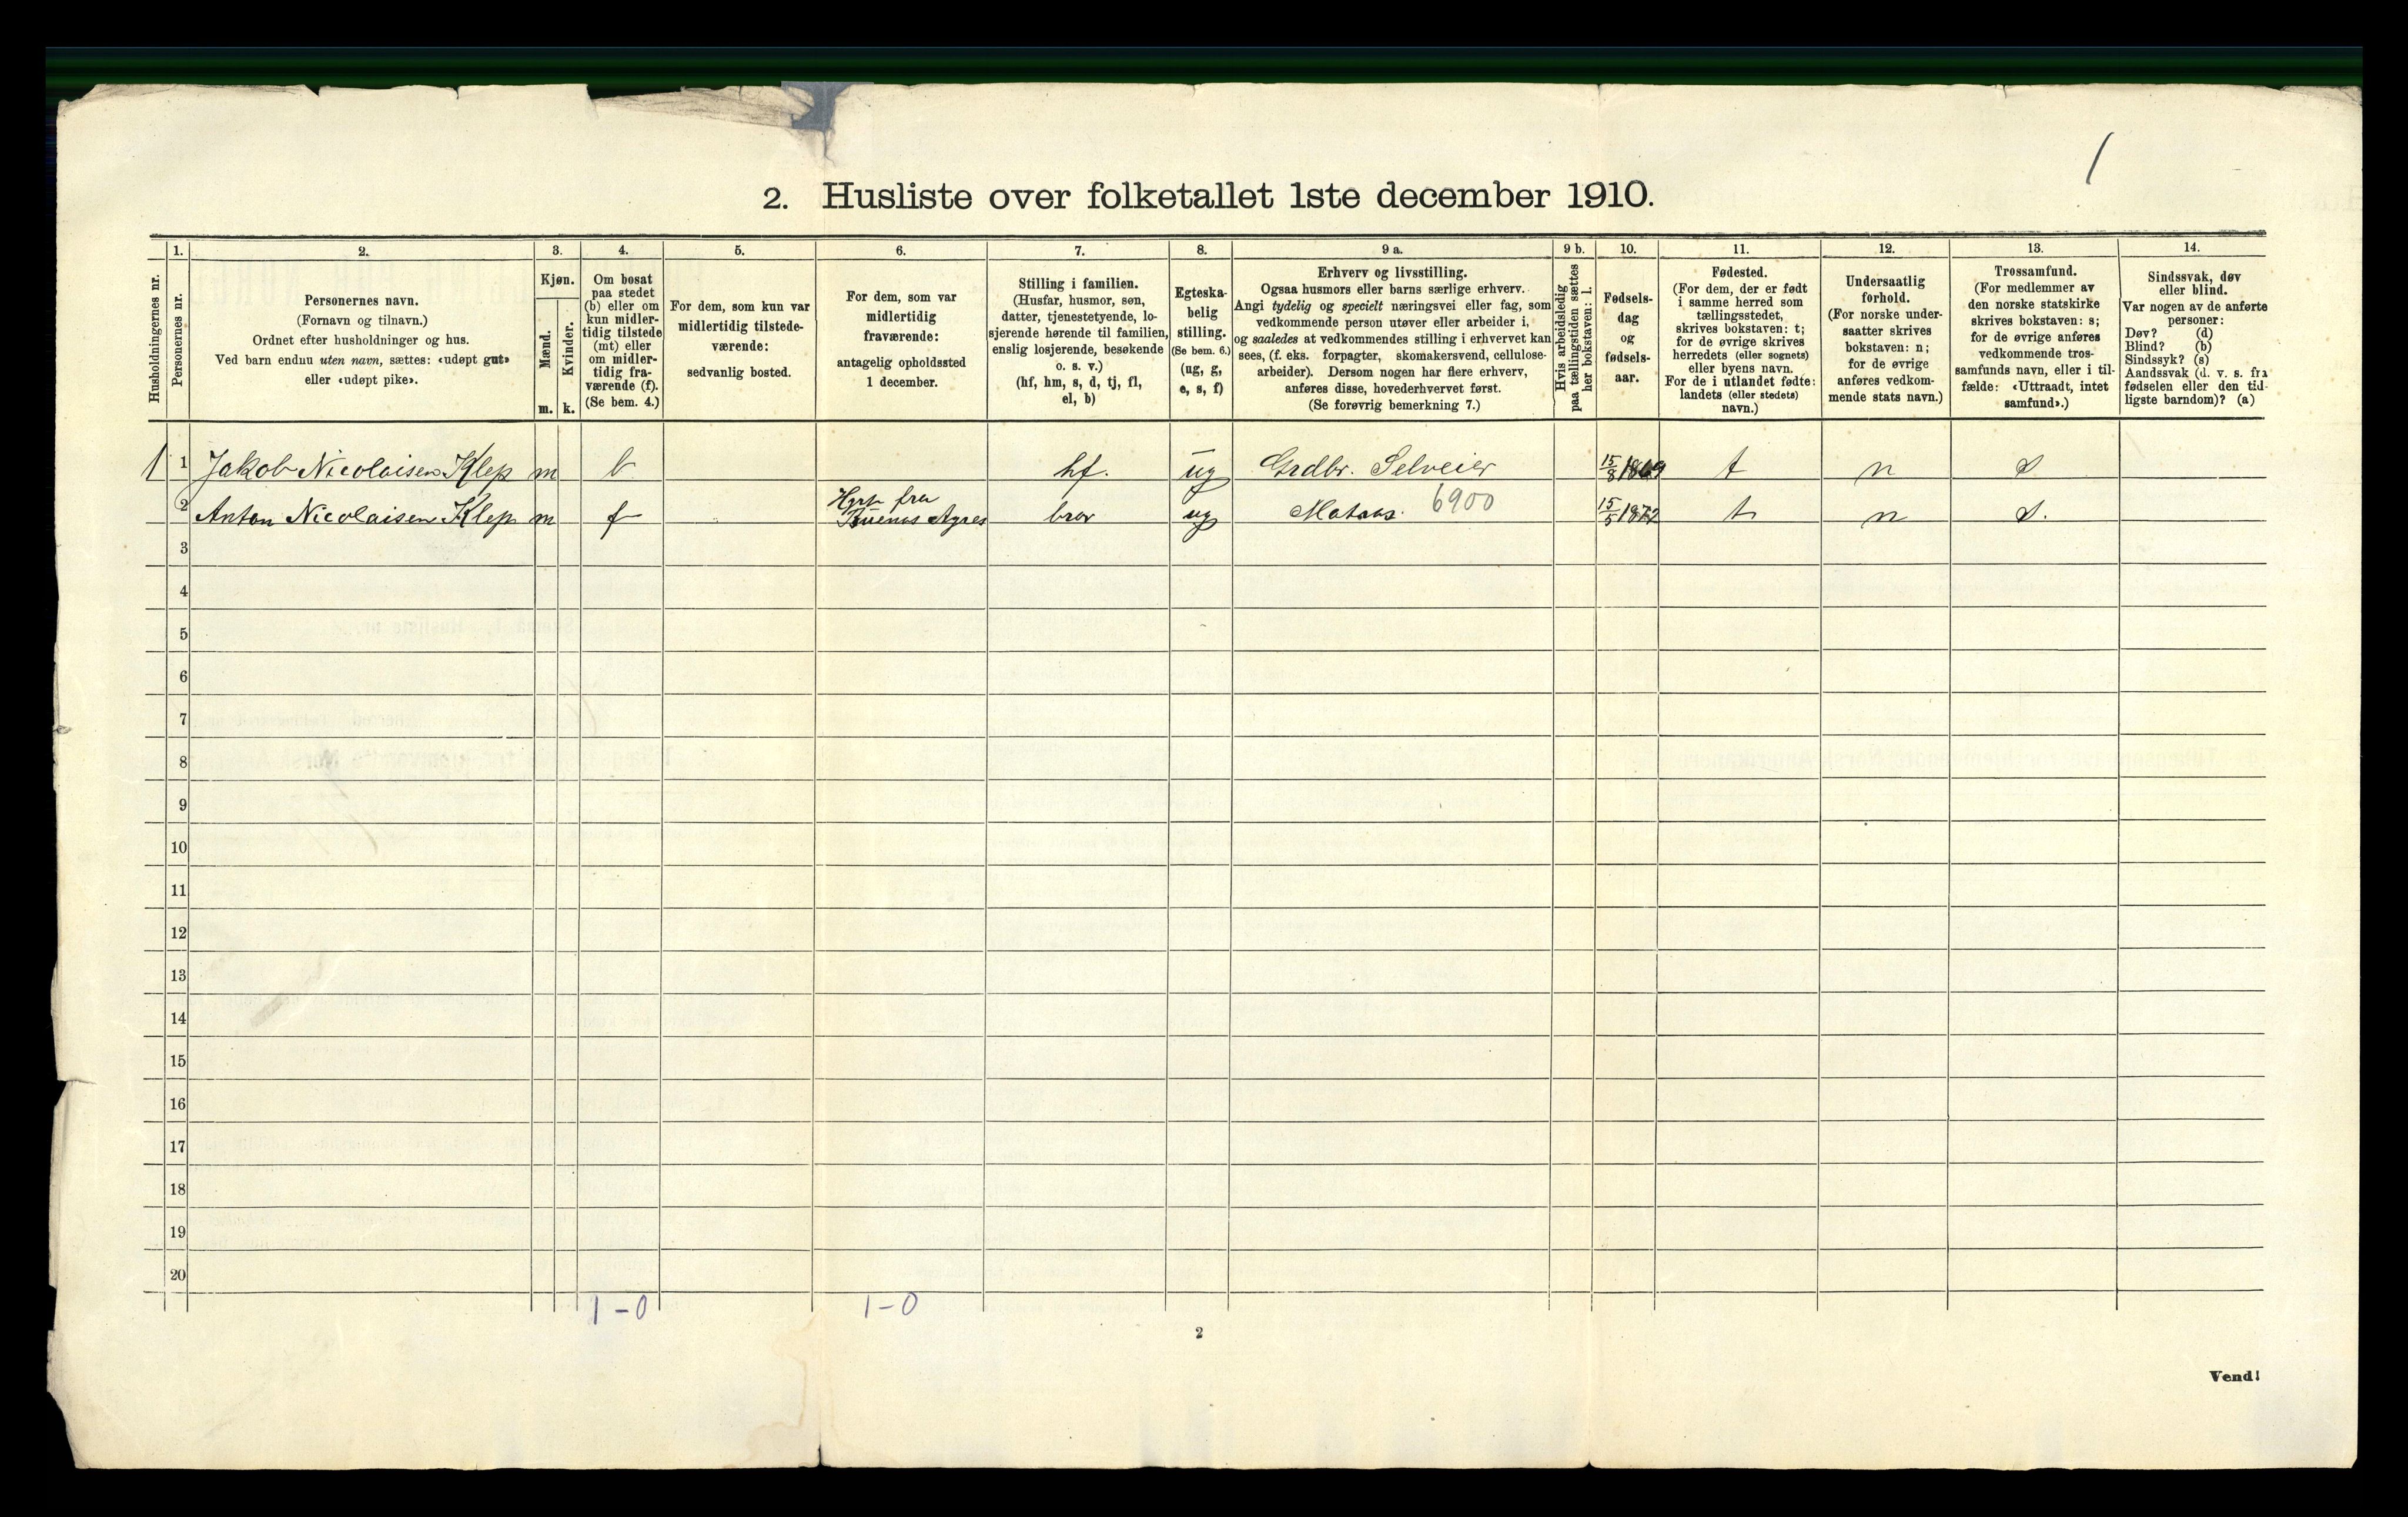 1
2. Husliste over folketallet 1ste december 1910.
Husholdningernes nr.
1.
Personernes nr.
2.
Personernes navn.
(Fornavn og tilnavn.)
Ordnet efter husholdninger og hus.
Ved barn endnu uten navn, sættes: «udøpt gut»
eller «udøpt pike».
3.
Kjøn.
Mænd.
m.
Kvinder.
k.
4.
Om bosat
paa stedet
(b) eller om
kun midler-
tidig tilstede
(mt) eller
om midler-
tidig fra-
værende (f).
(Se bem. 4.)
5.
For dem, som kun var
midlertidig tilstede-
værende:
sedvanlig bosted.
6.
For dem, som var
midlertidig
fraværende:
antagelig opholdssted
1 december.
7.
Stilling i familien.
(Husfar, husmor, søn,
datter, tjenestetyende, lo-
sjerende hørende til familien,
enslig losjerende, besøkende
o. s. v.)
(hf, hm, s, d, tj, fl,
el, b)
8.
Egteska-
belig
stilling.
(Se bem. 6.)
(ug, g,
e, s, f)
9 a.
Erhverv og livsstilling.
Ogsaa husmors eller barns særlige erhverv.
Angi tydelig og specielt næringsvei eller fag, som
vedkommende person utøver eller arbeider i,
og saaledes at vedkommendes stilling i erhvervet kan
sees, (f. eks. forpagter, skomakersvend, cellulose-
arbeider). Dersom nogen har flere erhverv,
anføres disse, hovederhvervet først.
(Se forøvrig bemerkning 7.)
9 b.
Hvis arbeidsledig
paa tællingstiden sættes
her bokstaven: l.
10.
Fødsels-
dag
og
fødsels-
aar.
11.
Fødested.
(For dem, der er født
i samme herred som
tællingsstedet,
skrives bokstaven: t;
for de øvrige skrives
herredets (eller sognets)
eller byens navn.
For de i utlandet fødte:
landets (eller stedets)
navn.)
12.
Undersaatlig
forhold.
(For norske under-
saatter skrives
bokstaven: n;
for de øvrige
anføres vedkom-
mende stats navn.)
13.
Trossamfund.
(For medlemmer av
den norske statskirke
skrives bokstaven: s;
for de øvrige anføres
vedkommende tros-
samfunds navn, eller i til-
fælde: «Uttraadt, intet
samfund».)
14.
Sindssvak, døv
eller blind.
Var nogen av de anførte
personer:
Døv? (d)
Blind? (b)
Sindssyk? (s)
Aandssvak (d. v. s. fra
fødselen eller den tid-
ligste barndom)? (a)
1 1 Jakob Nicolaisen Klep m b hf. ug Grdbr. Selveier 15/8 1869 t n s
2 Anton Nicolaisen Klep m f Hyrt fra Buenos Ayres bror ug Matros. 6900 15/5 1872 t n s.
3
4
5
6
7
8
9
10
11
12
13
14
15
16
17
18
19
20
1-0 1-0
2
Vend!